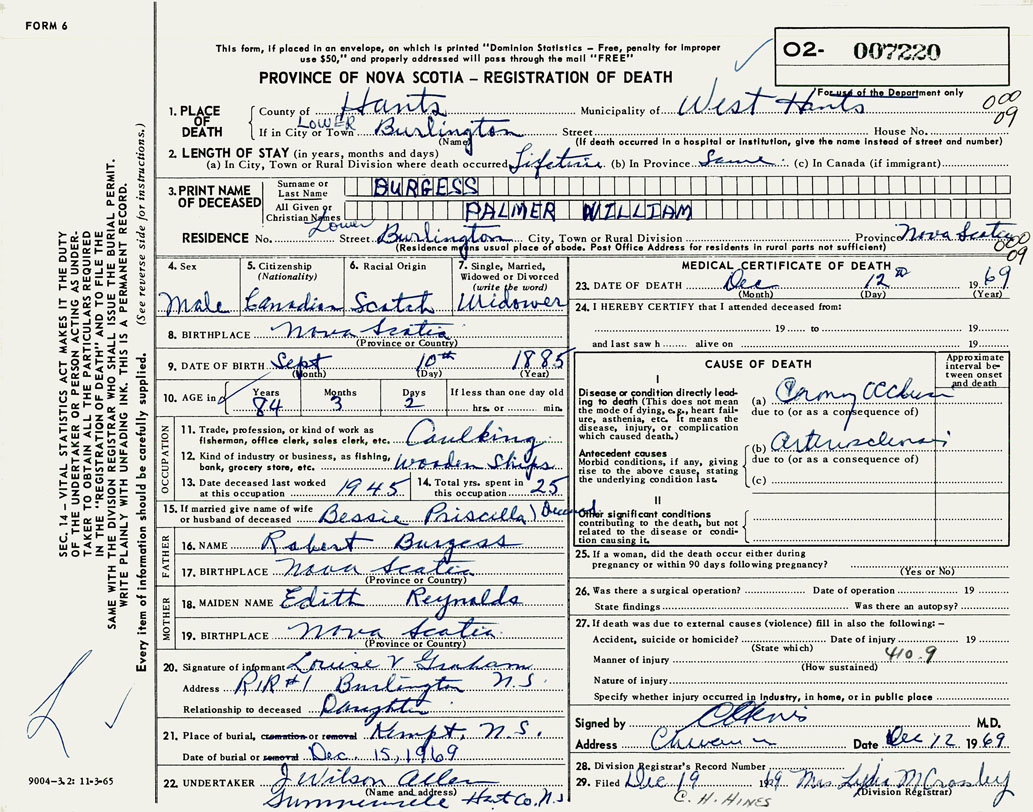 FORM 6
This form, if placed in an envelope, on which is printed "Dominion Statistics – Free, penalty for improper
use $50," and properly addressed will pass through the mail "FREE"
O2- 007220
PROVINCE OF NOVA SCOTIA – REGISTRATION OF DEATH
For use of the Department only
000
09
1. PLACE OF DEATH
County of Hants Municipality of West Hants
If in City or Town LOWER Burlington Street House No.
(Name) (If death occurred in a hospital or institution, give the name instead of street and number)
2. LENGTH OF STAY (in years, months and days)
(a) In City, Town or Rural Division where death occurred Lifetime (b) In Province Same (c) In Canada (if immigrant)
3. PRINT NAME OF DECEASED
Surname or Last Name BURGESS
All Given or Christian Names PALMER WILLIAM
RESIDENCE No. Street Lower Burlington City, Town or Rural Division Province Nova Scotia
(Residence means usual place of abode. Post Office Address for residents in rural parts not sufficient)
000
09
4. Sex Male
5. Citizenship (Nationality) Canadian
6. Racial Origin Scotch
7. Single, Married, Widowed or Divorced (write the word) Widower
8. BIRTHPLACE Nova Scotia
(Province or Country)
9. DATE OF BIRTH Sept 10th 1885
(Month) (Day) (Year)
10. AGE in Years 84 Months 3 Days 2 If less than one day old hrs. or min.
OCCUPATION
11. Trade, profession, or kind of work as fisherman, office clerk, sales clerk, etc. Caulking
12. Kind of industry or business, as fishing, bank, grocery store, etc. Wooden Ships
13. Date deceased last worked at this occupation 1945
14. Total yrs. spent in this occupation 25
15. If married give name of wife or husband of deceased Bessie Priscilla) Deceased
FATHER
16. NAME Robert Burgess
17. BIRTHPLACE Nova Scotia
(Province or Country)
MOTHER
18. MAIDEN NAME Edith Reynolds
19. BIRTHPLACE Nova Scotia
(Province or Country)
20. Signature of informant Louise V Graham
Address R.R #1 Burlington N.S.
Relationship to deceased Daughter
21. Place of burial, cremation or removal Kempt, N.S.
Date of burial or removal Dec. 15, 1969
22. UNDERTAKER J Wilson Allen
(Name and address)
Hants Co. N.S
MEDICAL CERTIFICATE OF DEATH
23. DATE OF DEATH Dec 12th 1969
(Month) (Day) (Year)
24. I HEREBY CERTIFY that I attended deceased from:
19 to 19
and last saw h alive on 19
CAUSE OF DEATH
Approximate interval between onset and death
I
Disease or condition directly leading to death (This does not mean the mode of dying, e.g., heart failure, asthenia, etc. It means the disease, injury, or complication which caused death.)
(a)
due to (or as a consequence of)
Antecedent causes
Morbid conditions, if any, giving rise to the above cause, stating the underlying condition last.
(b)
due to (or as a consequence of)
(c)
II
Other significant conditions
contributing to the death, but not related to the disease or condition causing it.
25. If a woman, did the death occur either during
pregnancy or within 90 days following pregnancy?
(Yes or No)
26. Was there a surgical operation? Date of operation 19
State findings Was there an autopsy?
27. If death was due to external causes (violence) fill in also the following: –
Accident, suicide or homicide? Date of injury 19
(State which)
Manner of injury 410.9
(How sustained)
Nature of injury
Specify whether injury occurred in industry, in home, or in public place
Signed by M.D.
Address Date Dec 12 1969
28. Division Registrar's Record Number
29. Filed Dec 19 1969 Mrs Lydia McCrossby
(Division Registrar)
C. H. HINES
SEC. 14 – VITAL STATISTICS ACT MAKES IT THE DUTY
OF THE UNDERTAKER OR PERSON ACTING AS UNDER-
TAKER TO OBTAIN ALL THE PARTICULARS REQUIRED
IN THE "REGISTRATION OF DEATH" AND TO FILE THE
SAME WITH THE DIVISION REGISTRAR WHO SHALL ISSUE THE BURIAL PERMIT.
WRITE PLAINLY WITH UNFADING INK. THIS IS A PERMANENT RECORD.
Every item of information should be carefully supplied. (See reverse side for instructions.)
9004-3.2: 11-3-65